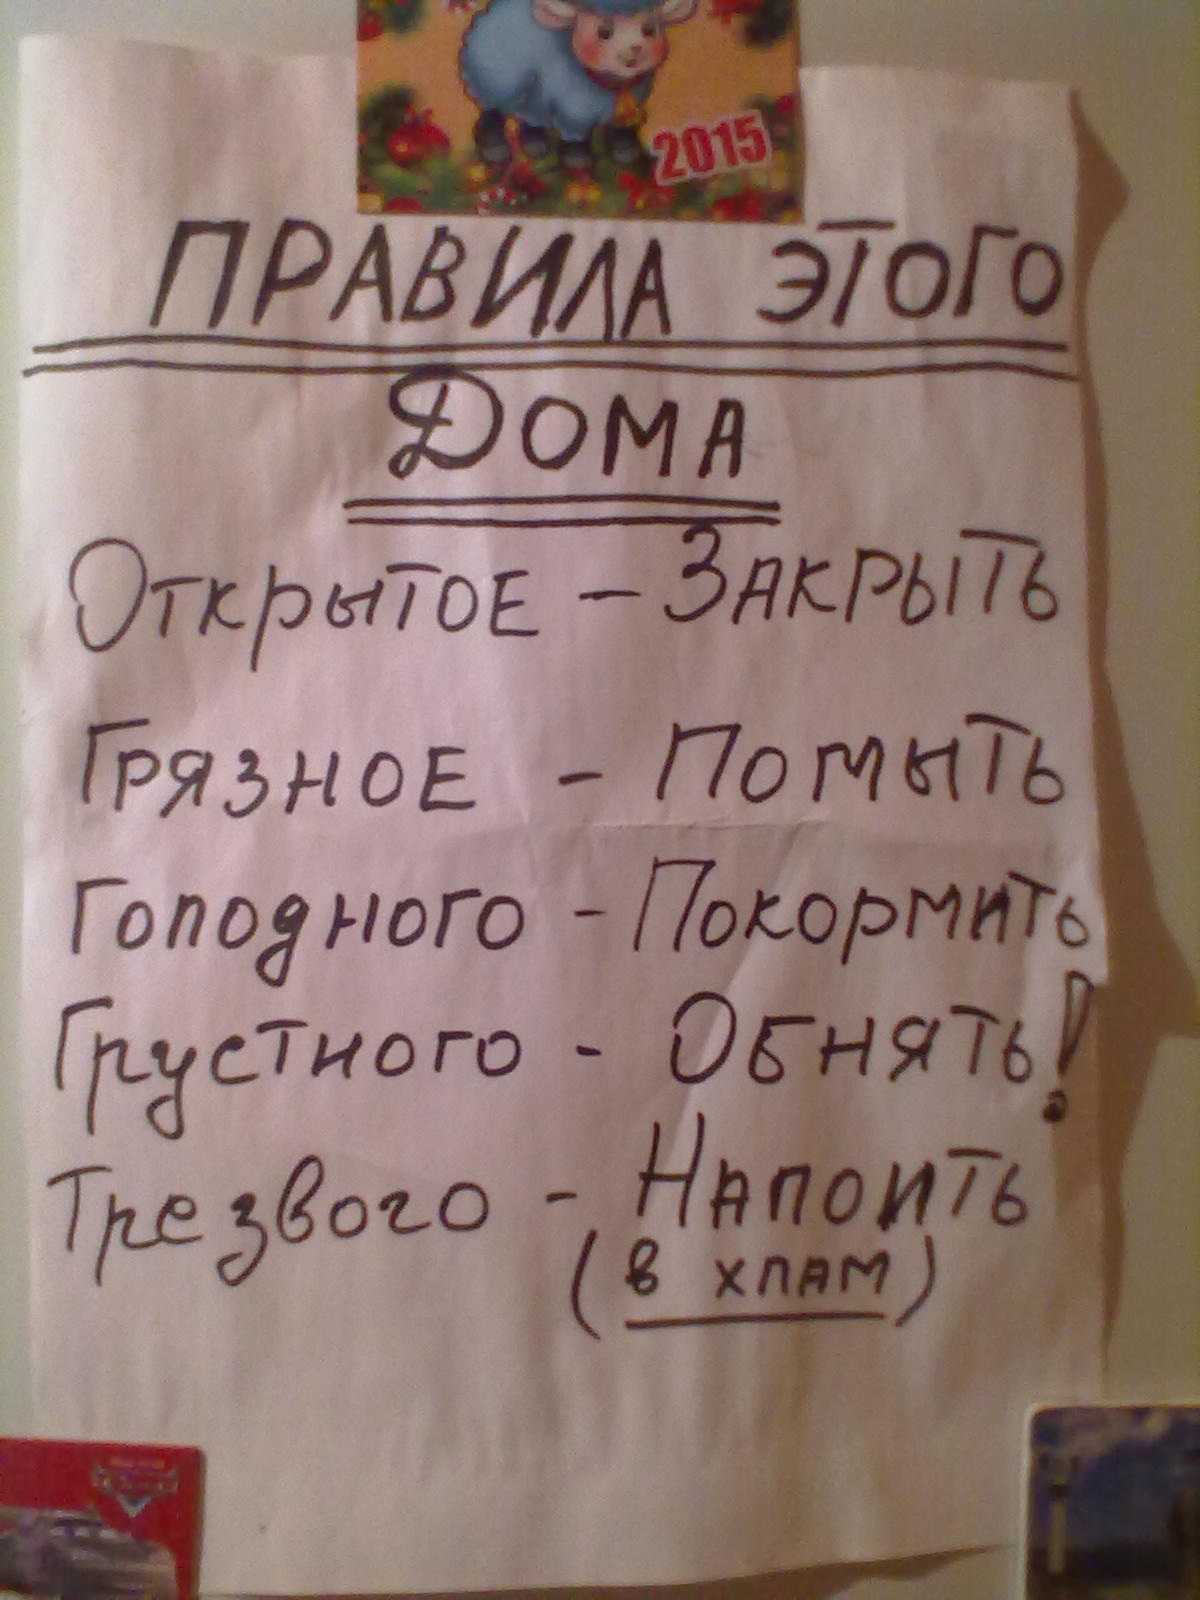 2015
ПРАВИЛА ЭТОГО
ДОМА
ОТКРЫТОЕ - ЗАКРЫТЬ
ГРЯЗНОЕ - ПОМЫТЬ
ГОЛОДНОГО - ПОКОРМИТЬ
ГРУСТНОГО - ОБНЯТЬ!
ТРЕЗВОГО - НАПОИТЬ
(в хлам)